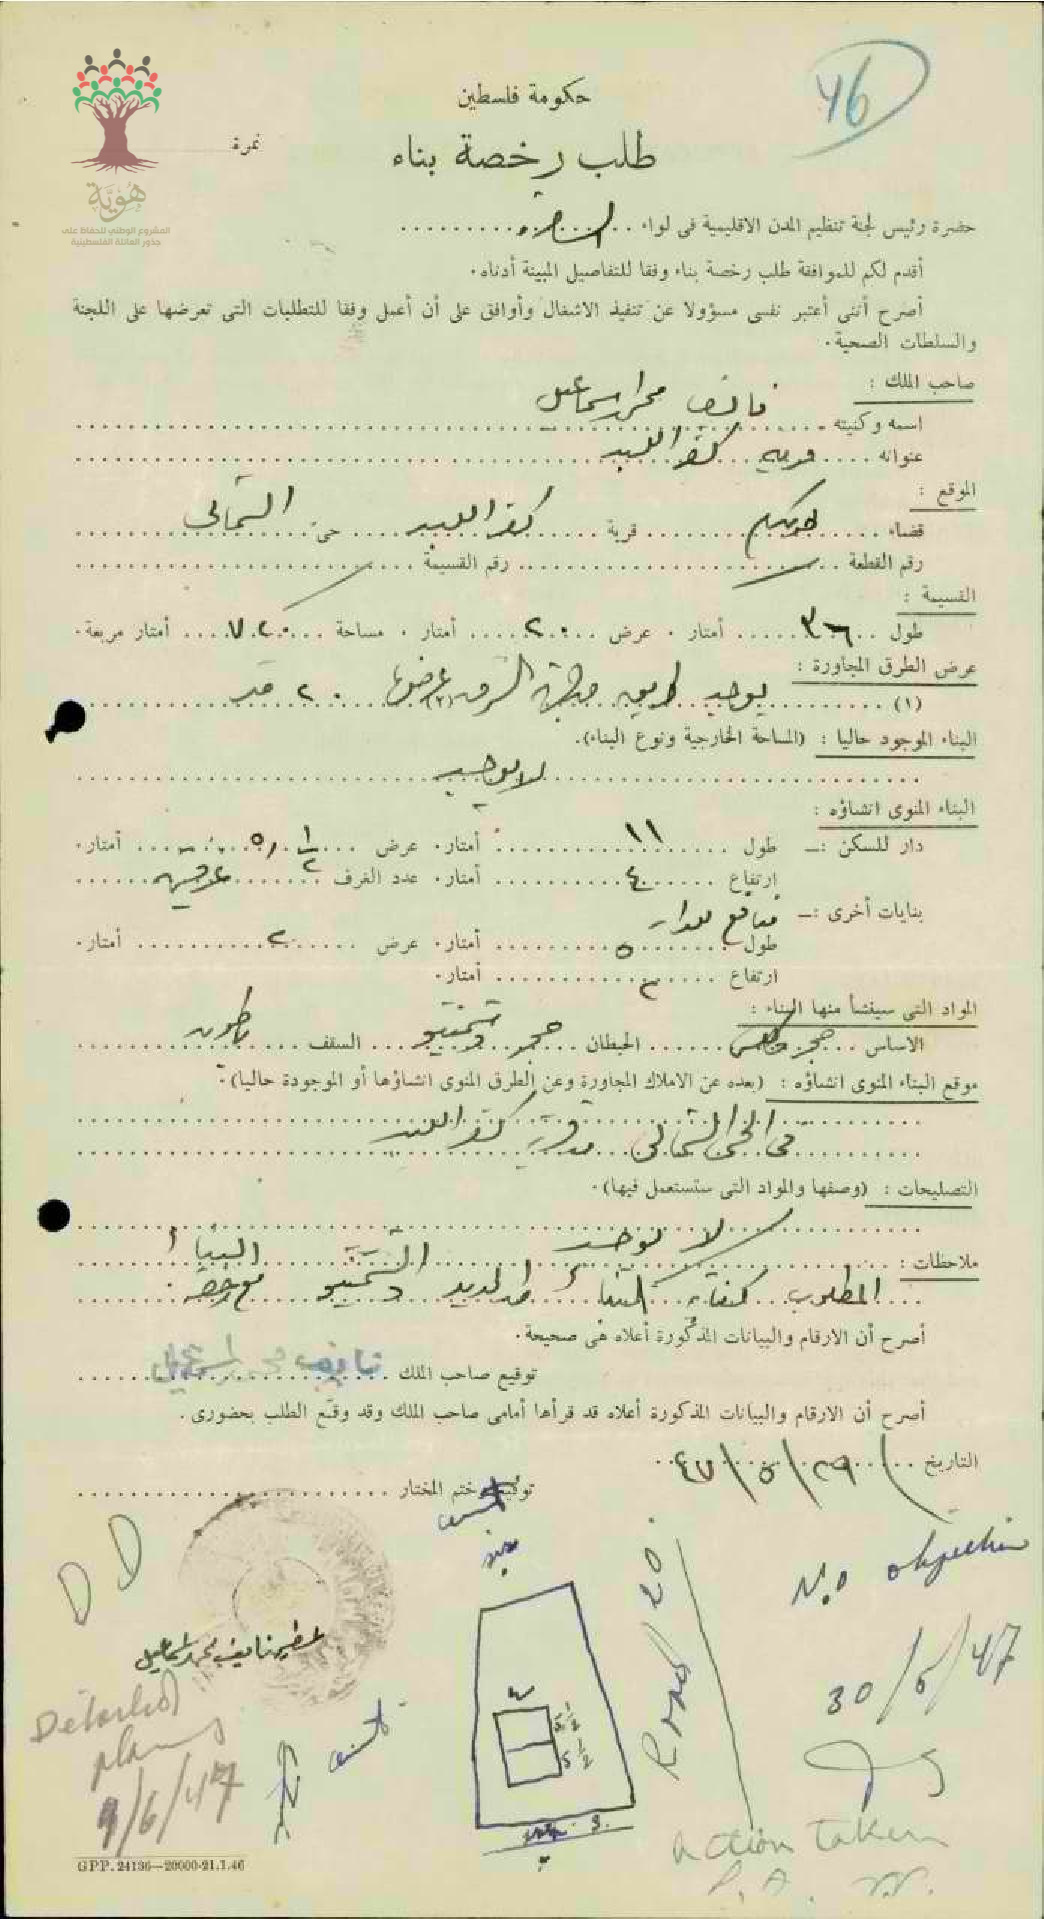 46
حكومة فلسطين
طلب رخصة بناء
نمرة
هُوِيَّة
المشروع الوطني للحفاظ على
جذور العائلة الفلسطينية
حضرة رئيس لجنة تنظيم المدن الاقليمية فى لواء السامره
أقدم لكم للموافقة طلب رخصة بناء وفقا للتفاصيل المبينة أدناه.
أصرح أننى أعتبر نفسى مسؤولا عن تنفيذ الاشغال وأوافق على أن أعمل وفقا للمتطلبات التى تعرضها على اللجنة
والسلطات الصحية.
صاحب الملك :
اسمه وكنيته نايف محمد اسماعيل
عنوانه قرية كفر اللبد
الموقع :
قضاء طولكرم قرية كفر اللبد حى الشمالي
رقم القطعة رقم القسيمة
القسيمة :
طول ٣٦ أمتار . عرض ٢٠ أمتار . مساحة ٧٢٠ أمتار مربعة.
عرض الطرق المجاورة :
(١) يوجد طريق من جهة الشرق (٢) عرضها ٢٠ قدم
البناء الموجود حاليا : (المساحة الخارجية ونوع البناء).
لا يوجد
البناء المنوى انشاؤه :
دار للسكن :— طول ١١ أمتار. عرض ٥ ١/٢ أمتار.
إرتفاع ٤ أمتار. عدد الغرف غرفتين
بنايات أخرى :— منافع للدار
طول ٥ أمتار. عرض ٢ أمتار.
ارتفاع أمتار.
المواد التى سينشأ منها البناء :
الاساس حجر وكلس الحيطان حجر وشمنتو السقف باطون
موقع البناء المنوى انشاؤه : (بعده عن الاملاك المجاورة وعن الطرق المنوى انشاؤها أو الموجودة حاليا).
في الحي الشمالي من قرية كفر اللبد
التصليحات : (وصفها والمواد التى ستستعمل فيها).
لا يوجد
ملاحظات :
المطلوب كفاية البناء من الحديد والشمنتو مع رخصة البناء
أصرح أن الارقام والبيانات المذكورة أعلاه هى صحيحة.
توقيع صاحب الملك نايف محمد اسماعيل
أصرح أن الارقام والبيانات المذكورة أعلاه قد قرأها أمامى صاحب الملك وقد وقع الطلب بحضورى.
التاريخ ٢٩/٥/٤٧
توقيع وختم المختار
No objection
30/5/47
Road 20
5 1/2
5 1/2
Detailed
plans
9/6/47
action taken
P.A.
GPP. 24136—20000-21.1.46